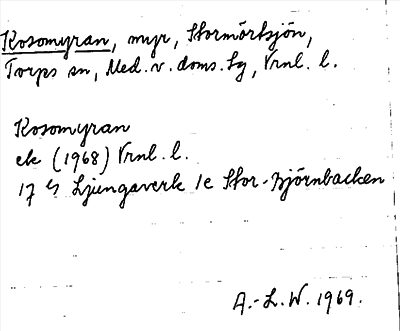 Kosomyran, myr, Stormörtsjön,
Torps sn, Med. v. doms. sg, Vrnl. l.
Kosomyran
ek (1968) Vrnl. l.
17 Ljungaverk 1e Stor-Björnbacken
A.-L. W. 1969.